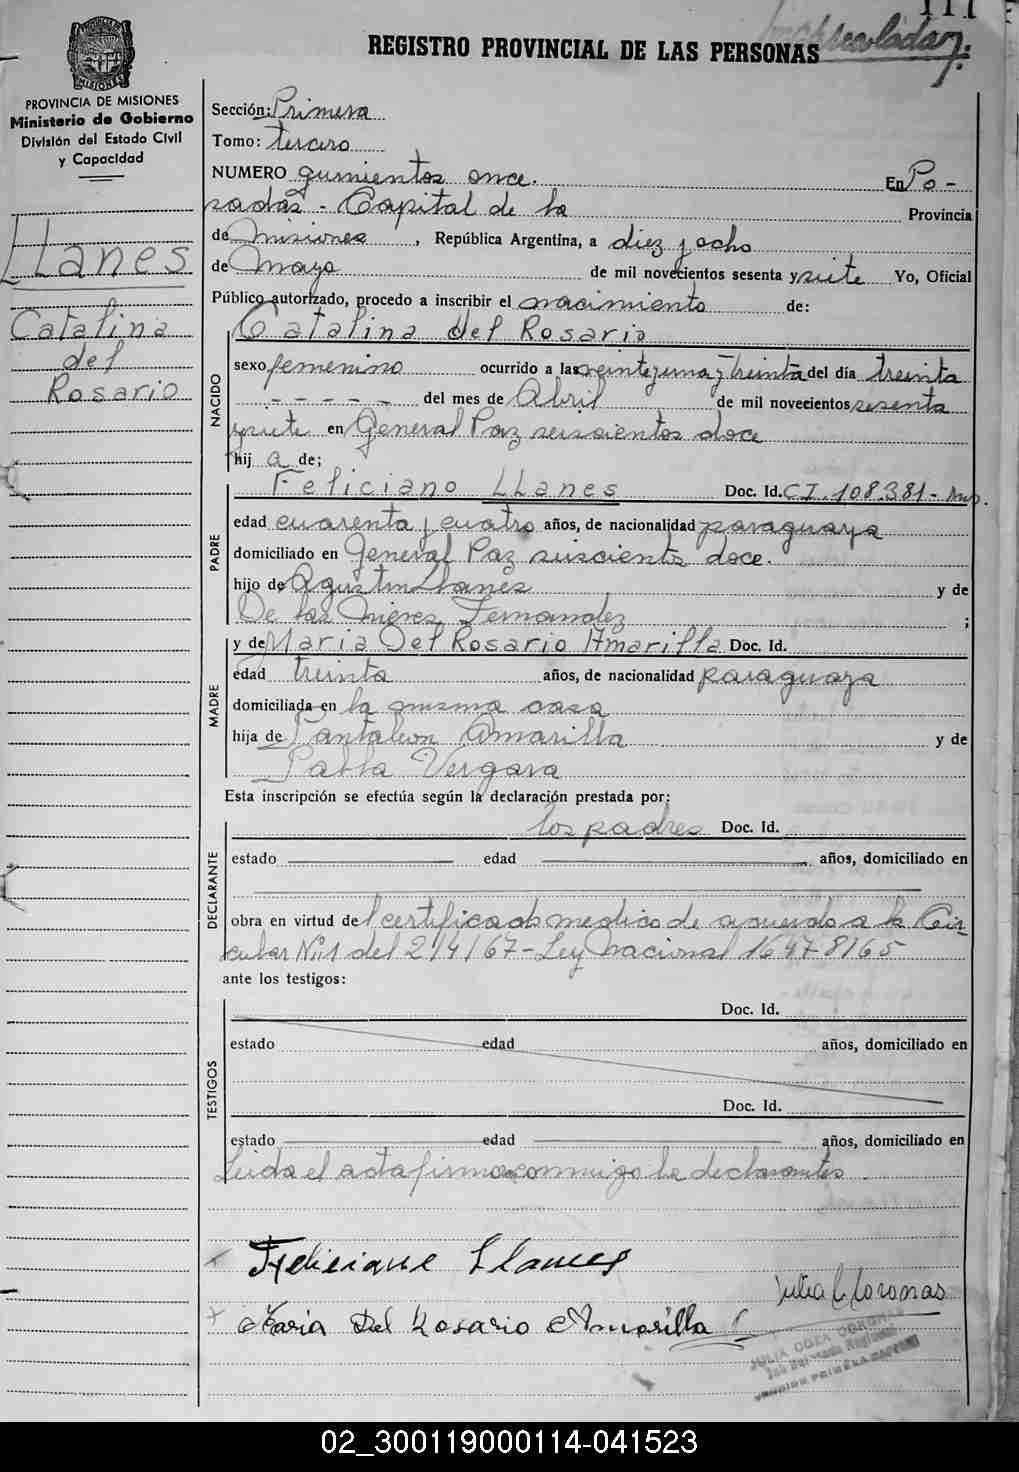 111
REGISTRO PROVINCIAL DE LAS PERSONAS
PROVINCIA DE MISIONES
Ministerio de Gobierno
División del Estado Civil
y Capacidad
Sección: Primera
Tomo: tercero
NUMERO quinientos once. En Po-
sadas - Capital de la Provincia
de Misiones, República Argentina, a diez y ocho
de Mayo de mil novecientos sesenta y siete Yo, Oficial
Público autorizado, procedo a inscribir el nacimiento de:
LLanes
Catalina
del
Rosario
NACIDO
Catalina del Rosario
sexo femenino ocurrido a las veinte y una y treinta del día treinta
- - - - - del mes de Abril de mil novecientos sesenta
y siete en General Paz seiscientos doce
hij a de;
PADRE
Feliciano LLanes Doc. Id. C.I. 108.381 -
edad cuarenta y cuatro años, de nacionalidad paraguaya
domiciliado en General Paz seiscientos doce.
hijo de Agustin Llanes y de
De las Nieves Fernandez ;
MADRE
y de Maria Del Rosario Amarilla Doc. Id.
edad treinta años, de nacionalidad paraguaya
domiciliada en la misma casa
hija de Pantaleon Amarilla y de
Pabla Vergara
Esta inscripción se efectúa según la declaración prestada por:
DECLARANTE
los padres Doc. Id.
estado edad años, domiciliado en
obra en virtud del certificado medico de acuerdo a la Cir-
cular Nº11 del 2/4/67 - Ley Nacional 16478/65
ante los testigos:
TESTIGOS
Doc. Id.
estado edad años, domiciliado en
Doc. Id.
estado edad años, domiciliado en
Leida el acta firman conmigo los declarantes.
Feliciano Llanes
Julia C Coronas
Maria Del Rosario Amarilla
02_300119000114-041523